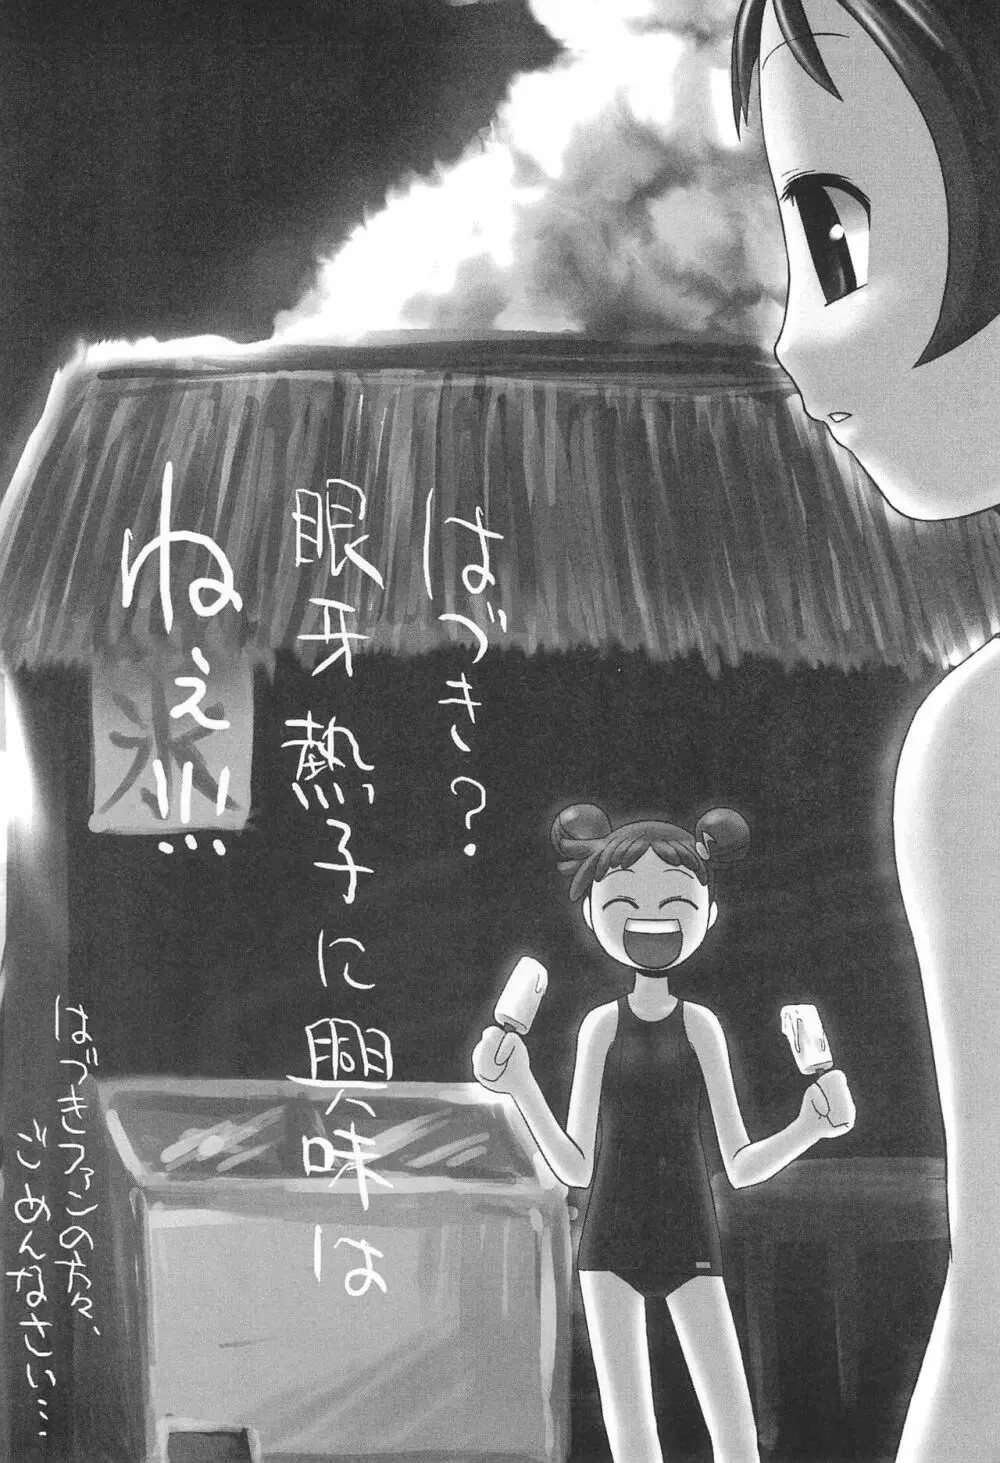 はづき?
眼牙熱子に興味は
ねぇ!!!…
氷
はづきファンの方々、
ごめんなさい…